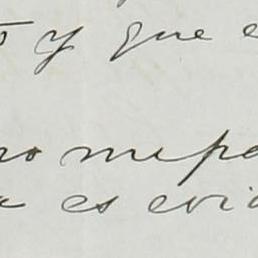 y que
no me pa
es evi